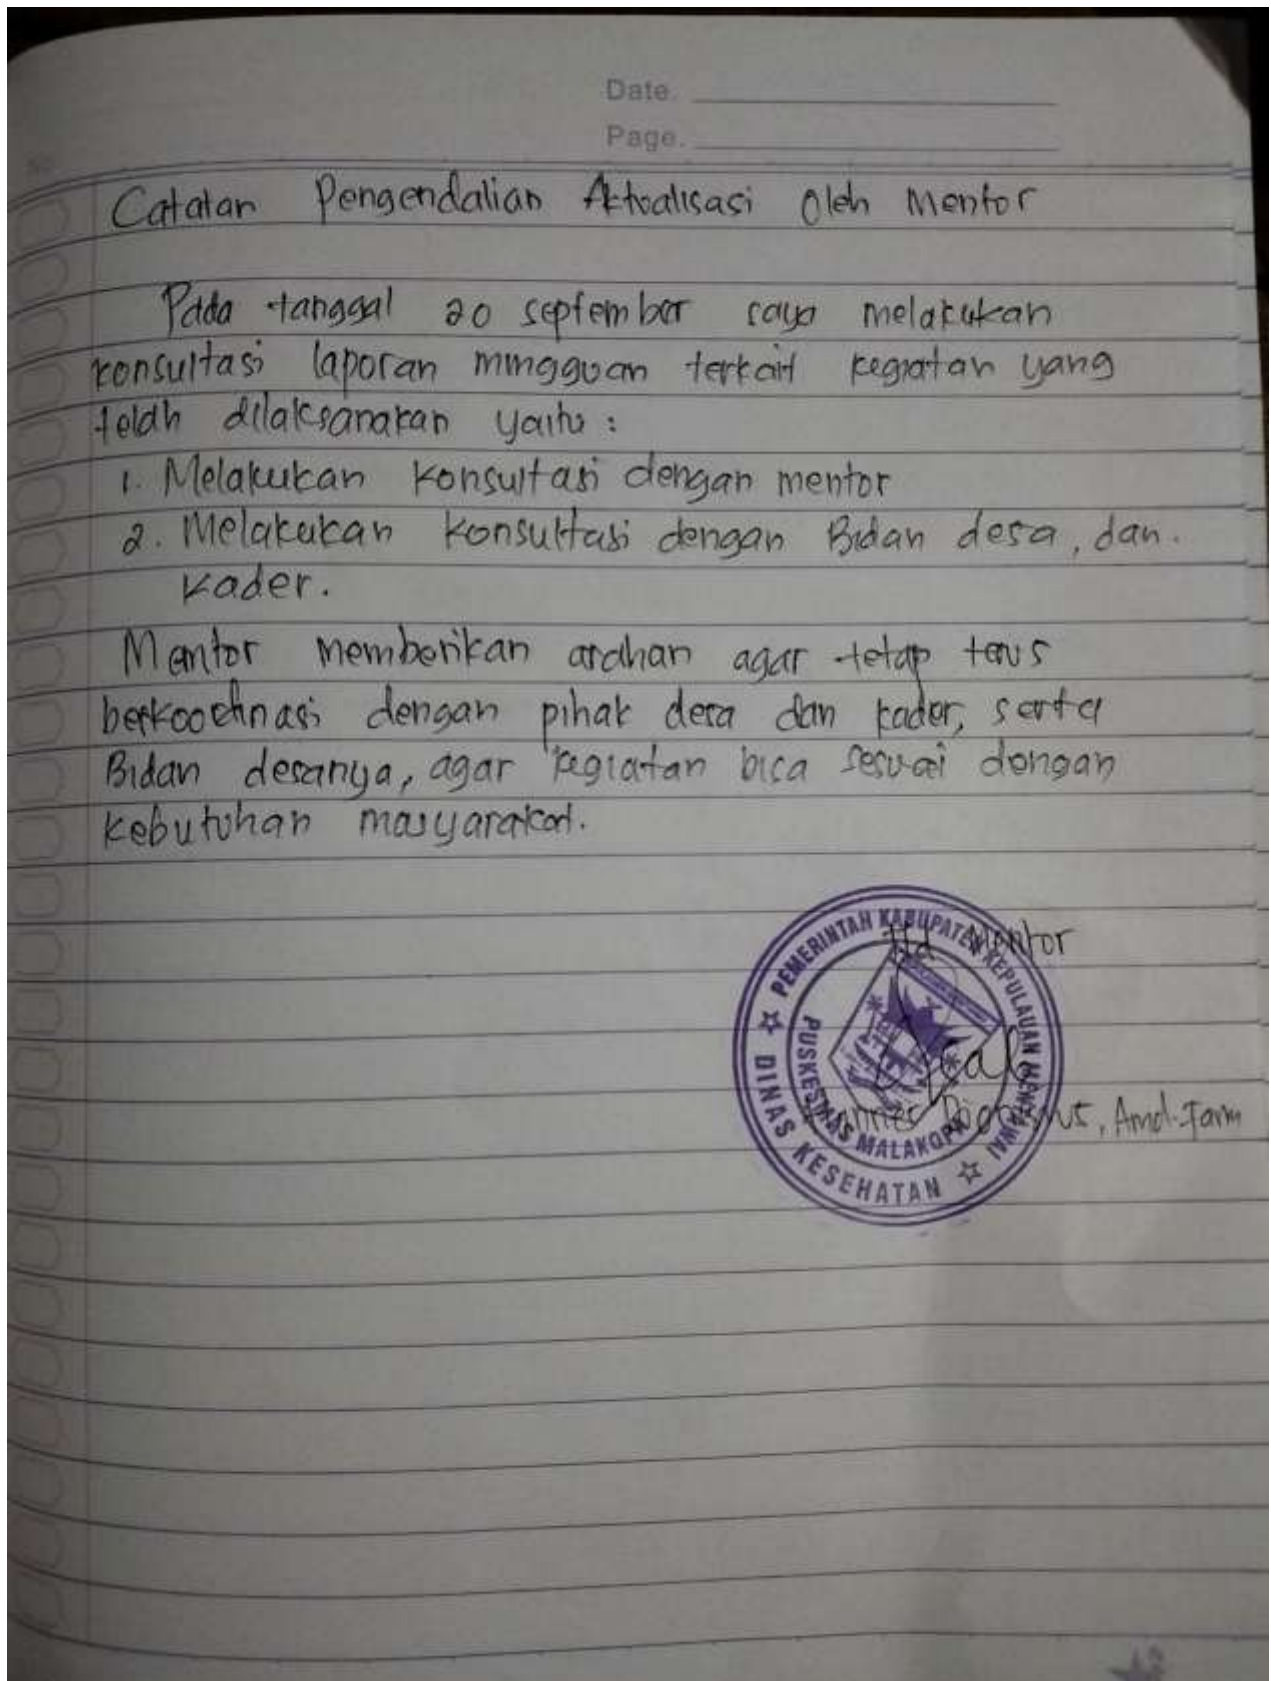 Date.
Page.
No
Catatan Pengendalian Aktualisasi Oleh Mentor
Pada tanggal 20 september saya melakukan
konsultasi laporan mingguan terkait kegiatan yang
telah dilaksanakan yaitu :
1. Melakukan Konsultasi dengan mentor
2. Melakukan Konsultasi dengan Bidan desa, dan.
Kader.
Mentor memberikan arahan agar tetap terus
berkoodinasi dengan pihak desa dan kader, serta
Bidan desanya, agar kegiatan bisa sesuai dengan
kebutuhan masyarakat.
Ttd Mentor
PEMERINTAH KABUPATEN KEPULAUAN MENTAWAI
DINAS KESEHATAN
PUSKESMAS MALAKOPA
Amd.Farm